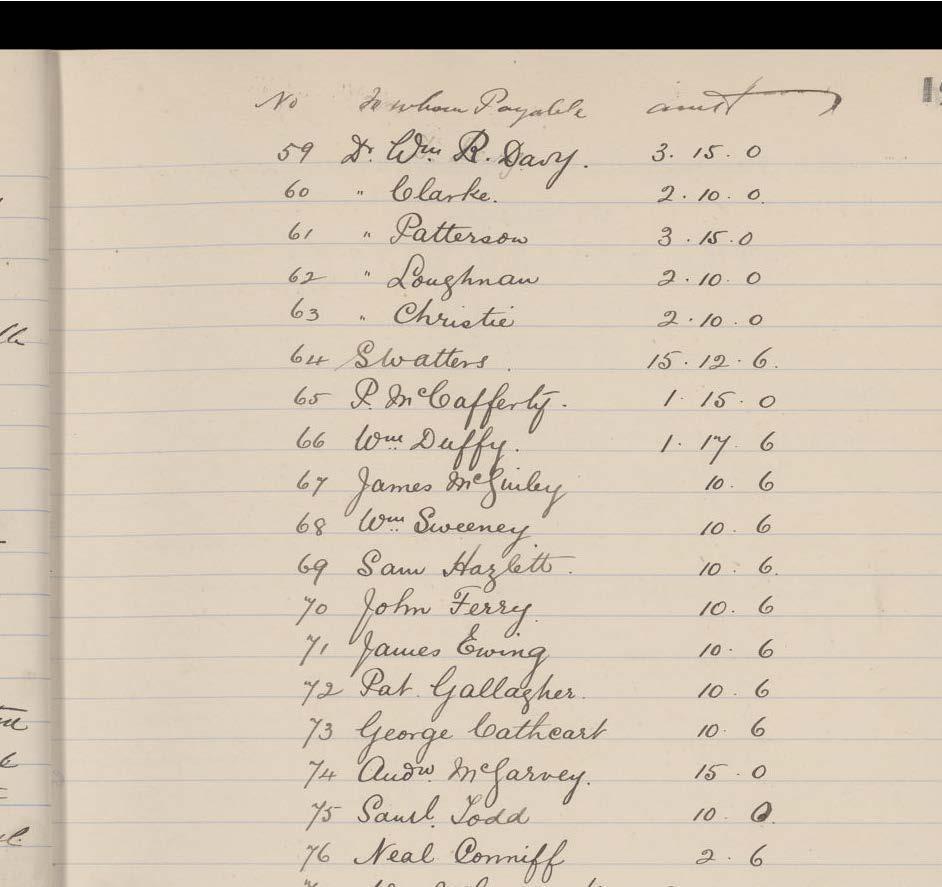 No To whom Payable amt
59 Dr. Wm. R. Davy. 3. 15. 0
60 " Clarke. 2. 10. 0.
61 " Patterson 3. 15. 0
62 " Loughnan 2. 10. 0
63 " Christie 2. 10. 0
64 S Watters. 15. 12. 6.
65 P. McCafferty. 1. 15. 0
66 Wm. Duffy. 1. 17. 6
67 James McGinley 10. 6
68 Wm. Sweeney 10. 6
69 Sam Hazlett. 10. 6.
70 John Ferry. 10. 6
71 James Ewing 10. 6
72 Pat. Gallagher. 10. 6
73 George Cathcart 10. 6
74 Andw. McGarvey. 15. 0
75 Saml. Todd 10. 0.
76 Neal Conniff 2. 6